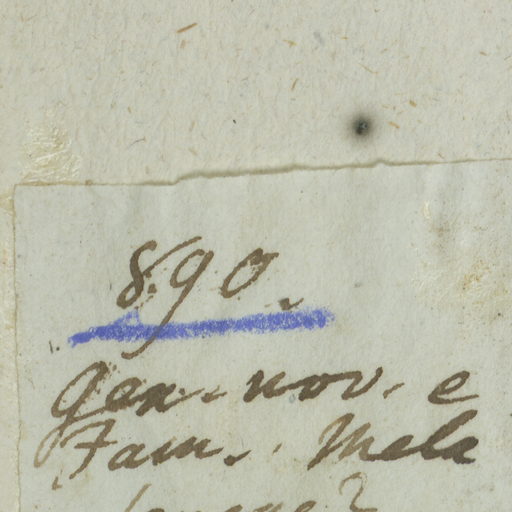 890.
Gen. nov. e
Fam. Mela